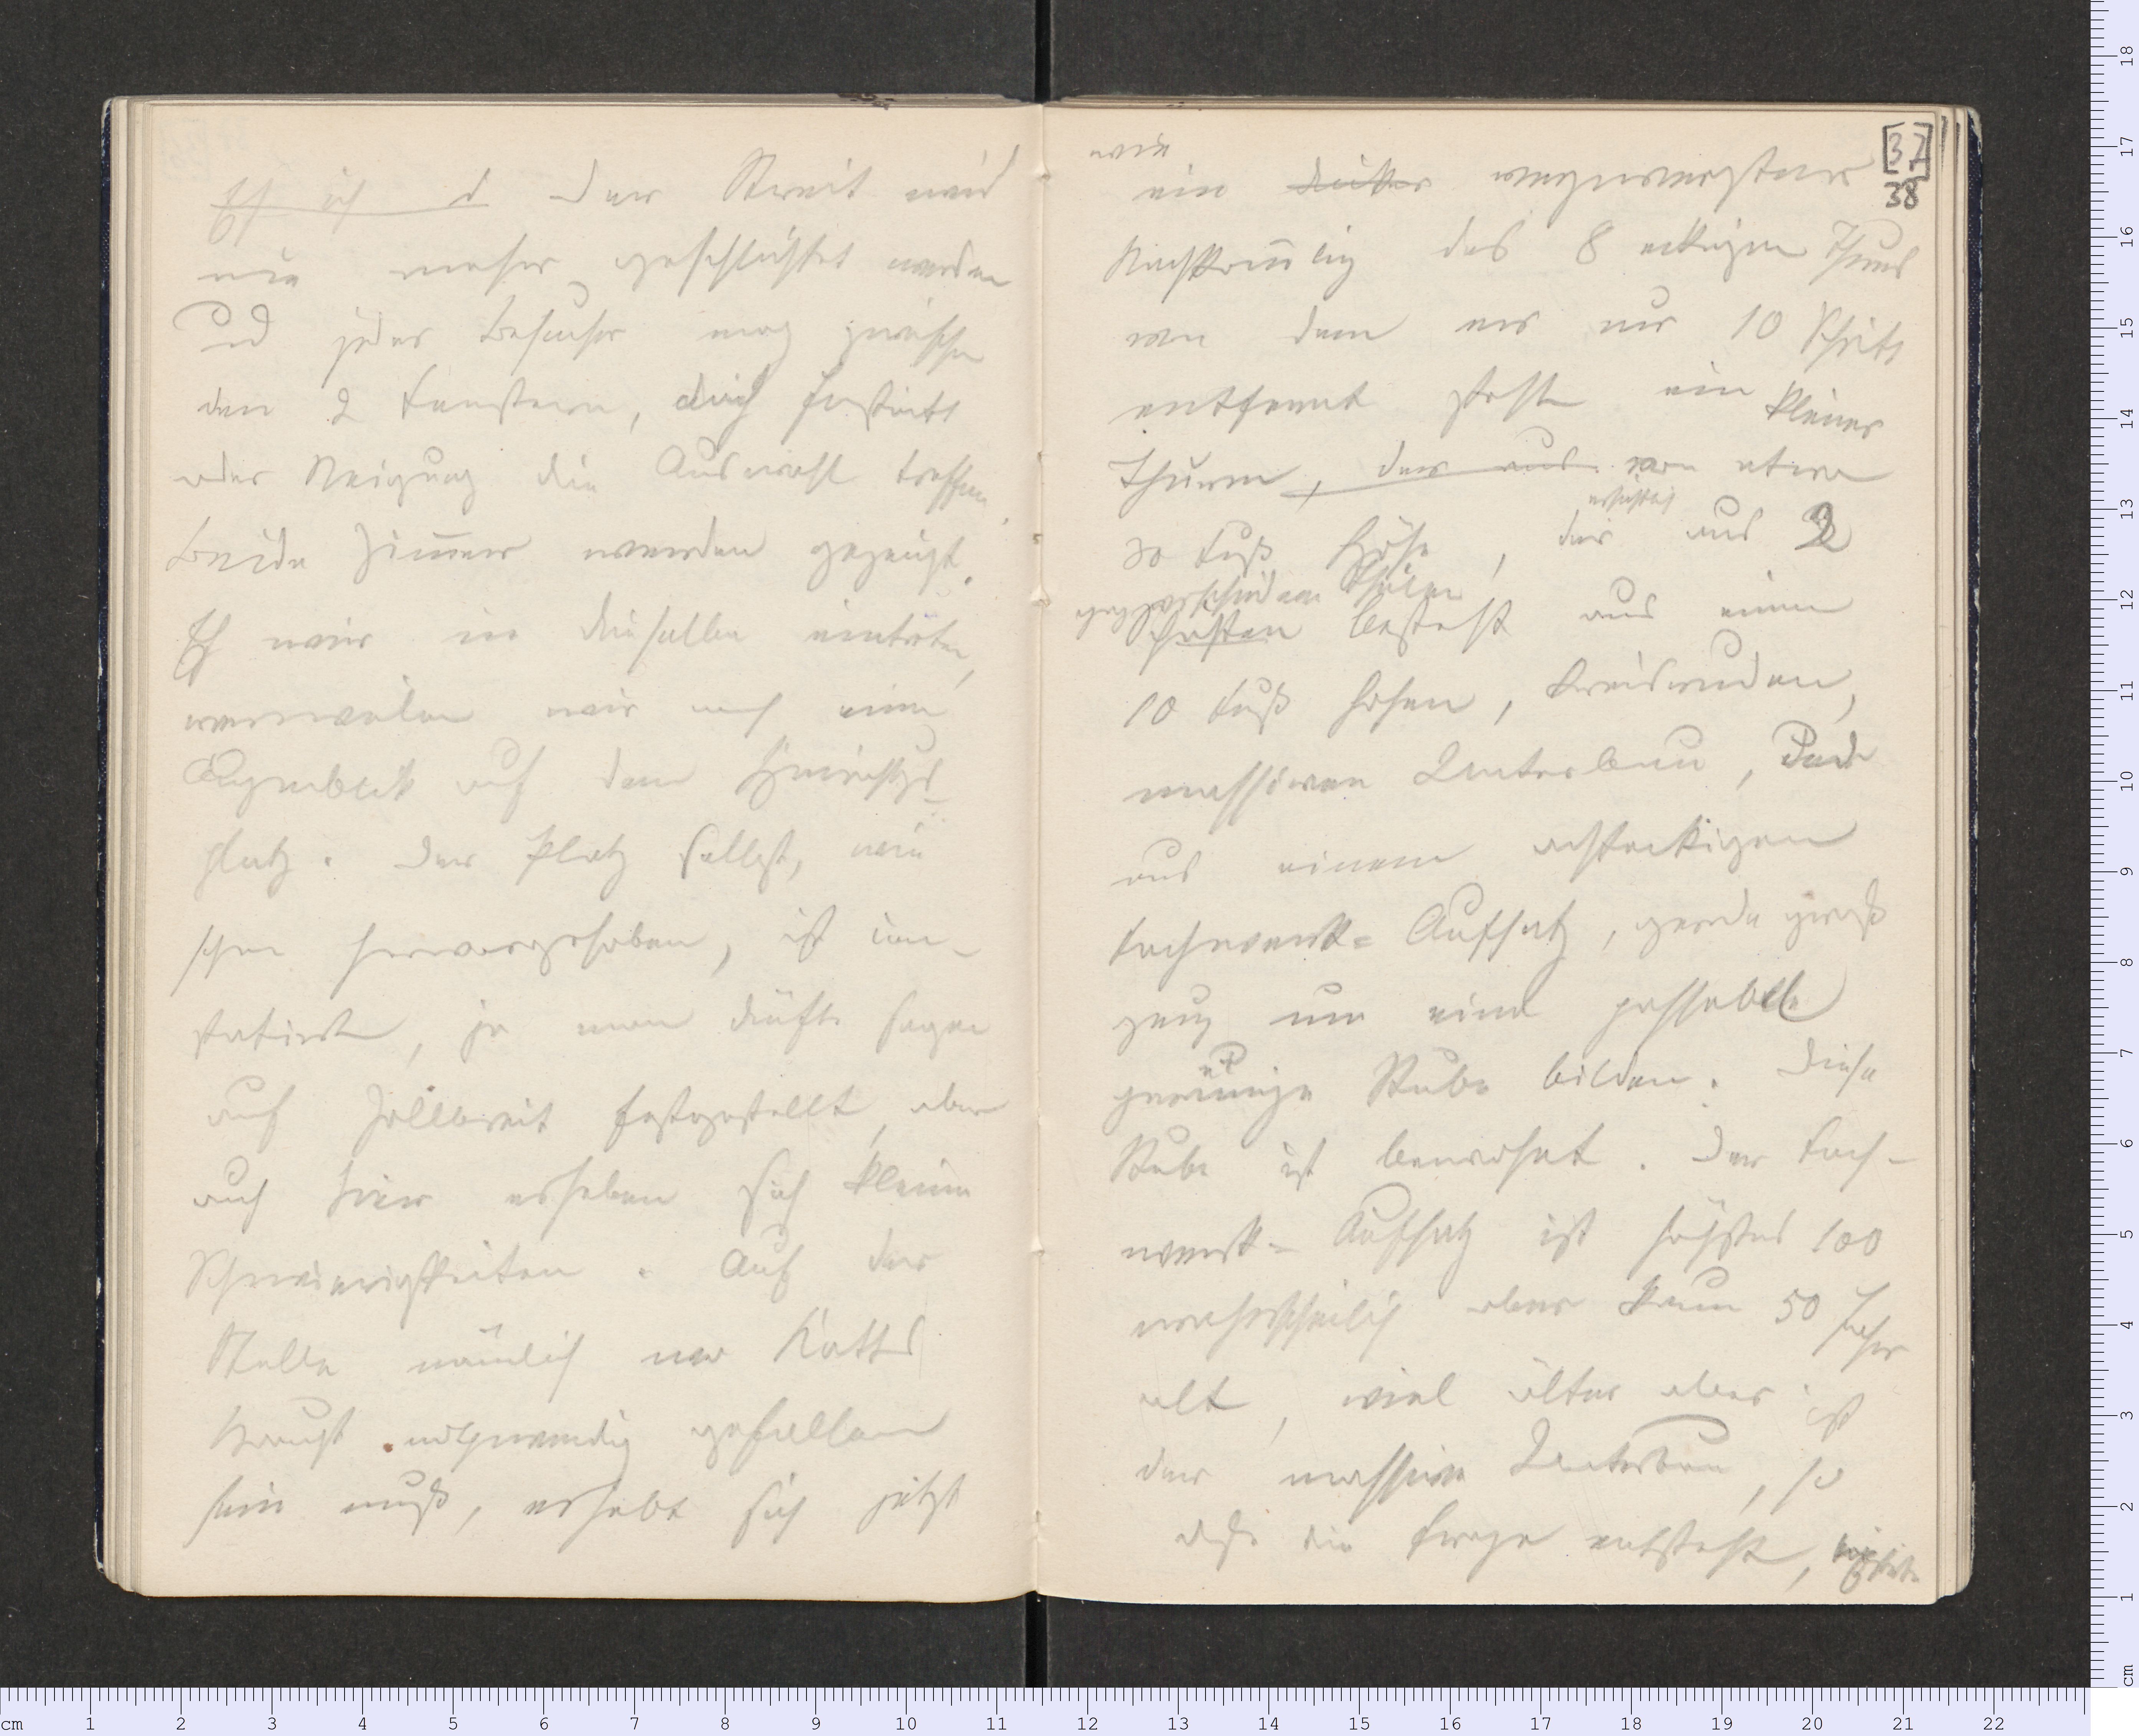 Eh ich d Der Streit wird
nie mehr geschlichtet werden
Und jeder Besucher mag zwischen
den 2 Fenstern, durch Instinkt
oder Neigung die Auswahl treffen.
Beide Zimmer werden gezeigt.
Eh wir in dieselben eintreten,
verweilen wir noch einen
Augenblick auf dem Hinrichtgs-
platz. Der Platz selbst, wie
schon hervorgehoben, ist con-
statirt, ja man dürfte sagen
auf Zollbreit festgestellt, aber
auch hier erheben sich kleine
Schwierigkeiten. Auf der
Stelle nämlich wo Katts
Haupt nothwendig gefallen
sein muß, erhebt sich jetzt
[37]
38
wie
ein dicker vergröberter
Nachkömmling des 8 eckigen Thurms
von dem er nur 10 Schritt
entfernt steht ein kleiner
Thurm, der aus von etwa
ersichtlich
30 Fuß Höhe, der aus 2
ganz verschiedenen Theilen
Hälften besteht aus einem
10 Fuß hohen, kreisrunden,
massiven Unterbau, Und
aus einem achteckigen
Fachwerk-Aufsatz, gerade groß
genug um eine passable
geräumige Stube bilden. Diese
Stube ist bewohnt. Der Fach-
werk-Aufsatz ist höchstens 100
wahrscheinlich aber kaum 50 Jahr
alt, viel älter aber ist
der massive Unterbau, so
daß die Frage entsteht,